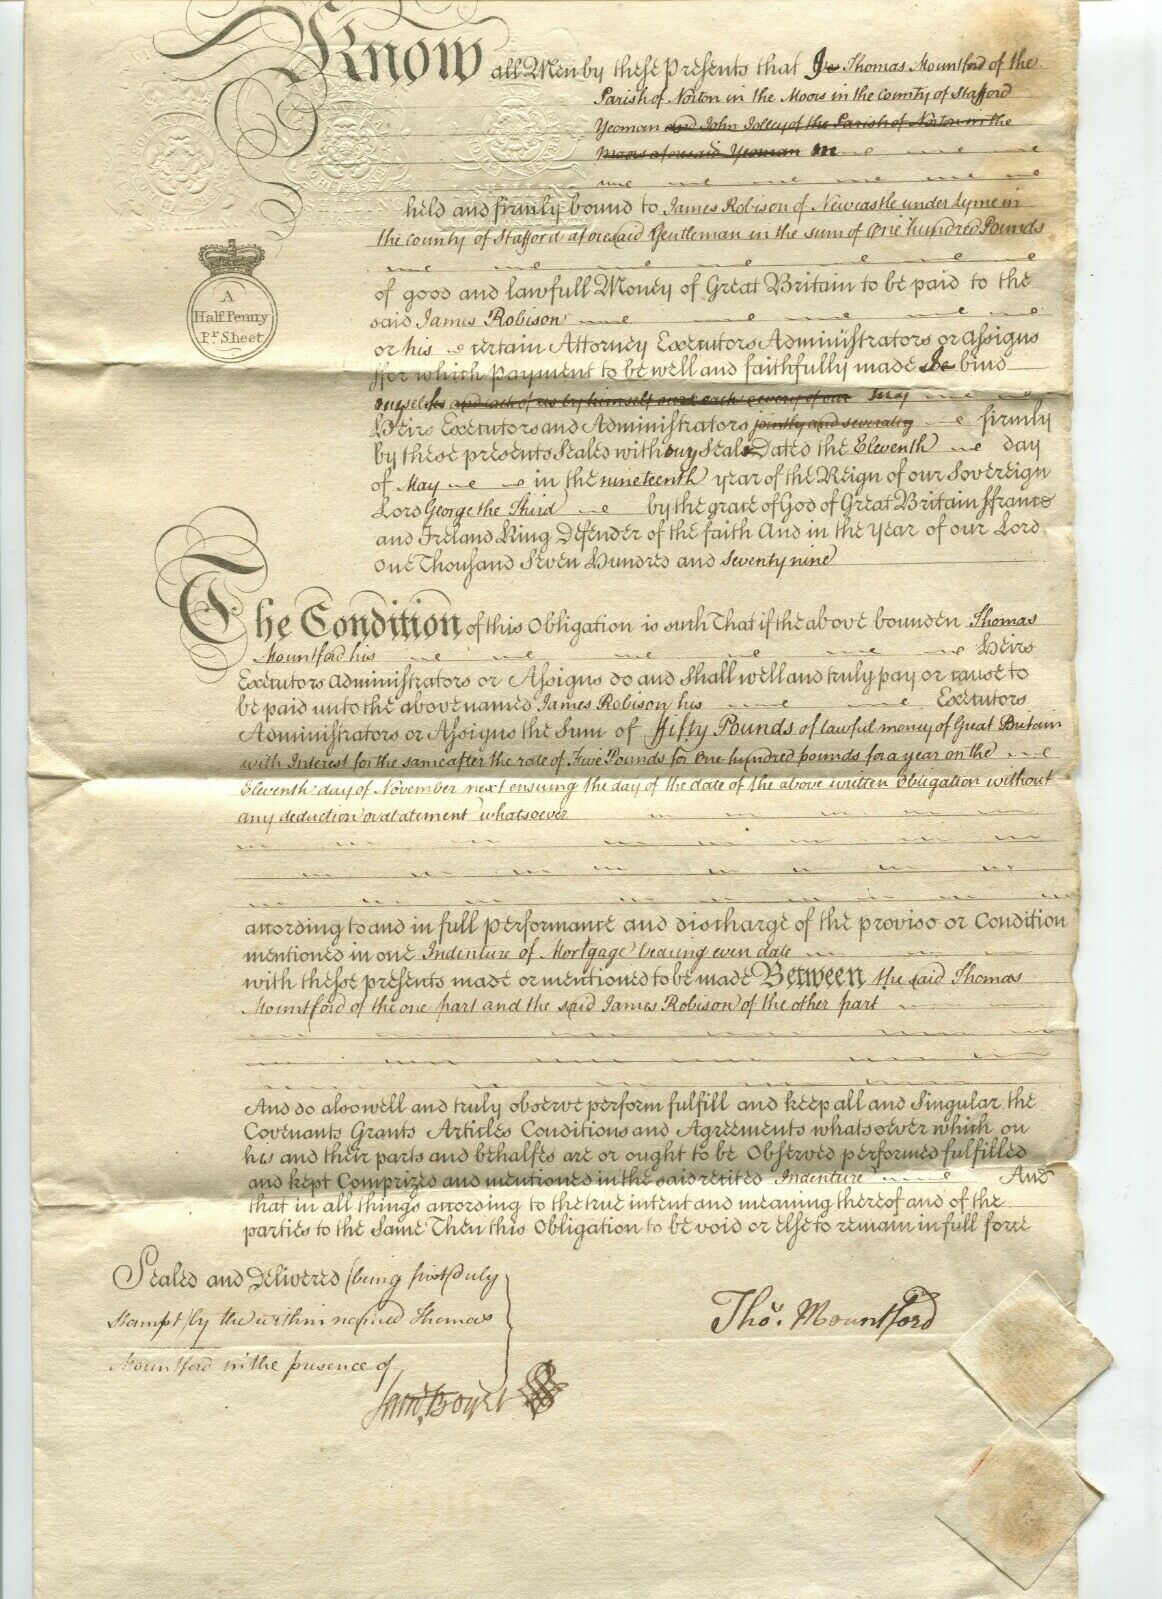 Know all Men by these Presents that I Thomas Mountford of the
Parish of Norton in the Moors in the County of Stafford
Yeoman and John Jolley of the Parish of Norton in the
Moors aforesaid Yeoman am
held and firmly bound to James Robison of Newcastle under lyme in
the County of Stafford aforesaid Gentleman in the sum of One hundred Pounds
of good and lawfull Money of Great Britain to be paid to the
said James Robison
A
Half Penny
Pr Sheet
or his certain Attorney Executors Administrators or Assigns
ffor which payment to be well and faithfully made I bind
myself and each of us by himself our & each & every of our my
Heirs Executors and Administrators jointly and severally firmly
by these presents Sealed with my Seal Dated the Eleventh day
of May in the nineteenth year of the Reign of our Sovereign
Lord George the Third by the grace of God of Great Britain ffrance
and Ireland King Defender of the faith And in the Year of our Lord
one Thousand Seven Hundred and Seventy nine
The Condition of this Obligation is such That if the above bounden Thomas
Mountford his Heirs
Executors Administrators or Assigns do and Shall well and truly pay or cause to
be paid unto the above named James Robison his Executors
Administrators or Assigns the Sum of ffifty Pounds of lawful money of Great Britain
with Interest for the same after the rate of Five Pounds for One hundred pounds for a year on the
Eleventh day of November next ensuing the day of the date of the above written Obligation without
any deduction or abatement whatsoever
according to and in full performance and discharge of the proviso or Condition
mentioned in one Indenture of Mortgage bearing even date
with these presents made or mentioned to be made Between the said Thomas
Mountford of the one part and the said James Robison of the other part
And do also well and truly observe perform fulfill and keep all and Singular the
Covenants Grants Articles Conditions and Agreements whatsoever which on
his and their parts and behalfes are or ought to be Observed performed fulfilled
and kept Comprized and mentioned in the said recited Indenture And
that in all things according to the true intent and meaning thereof and of the
parties to the Same Then this Obligation to be void or else to remain in full force
Sealed and Delivered (being first duly
Stampt) by the within named Thomas
Mountford in the presence of
Thos. Mountford